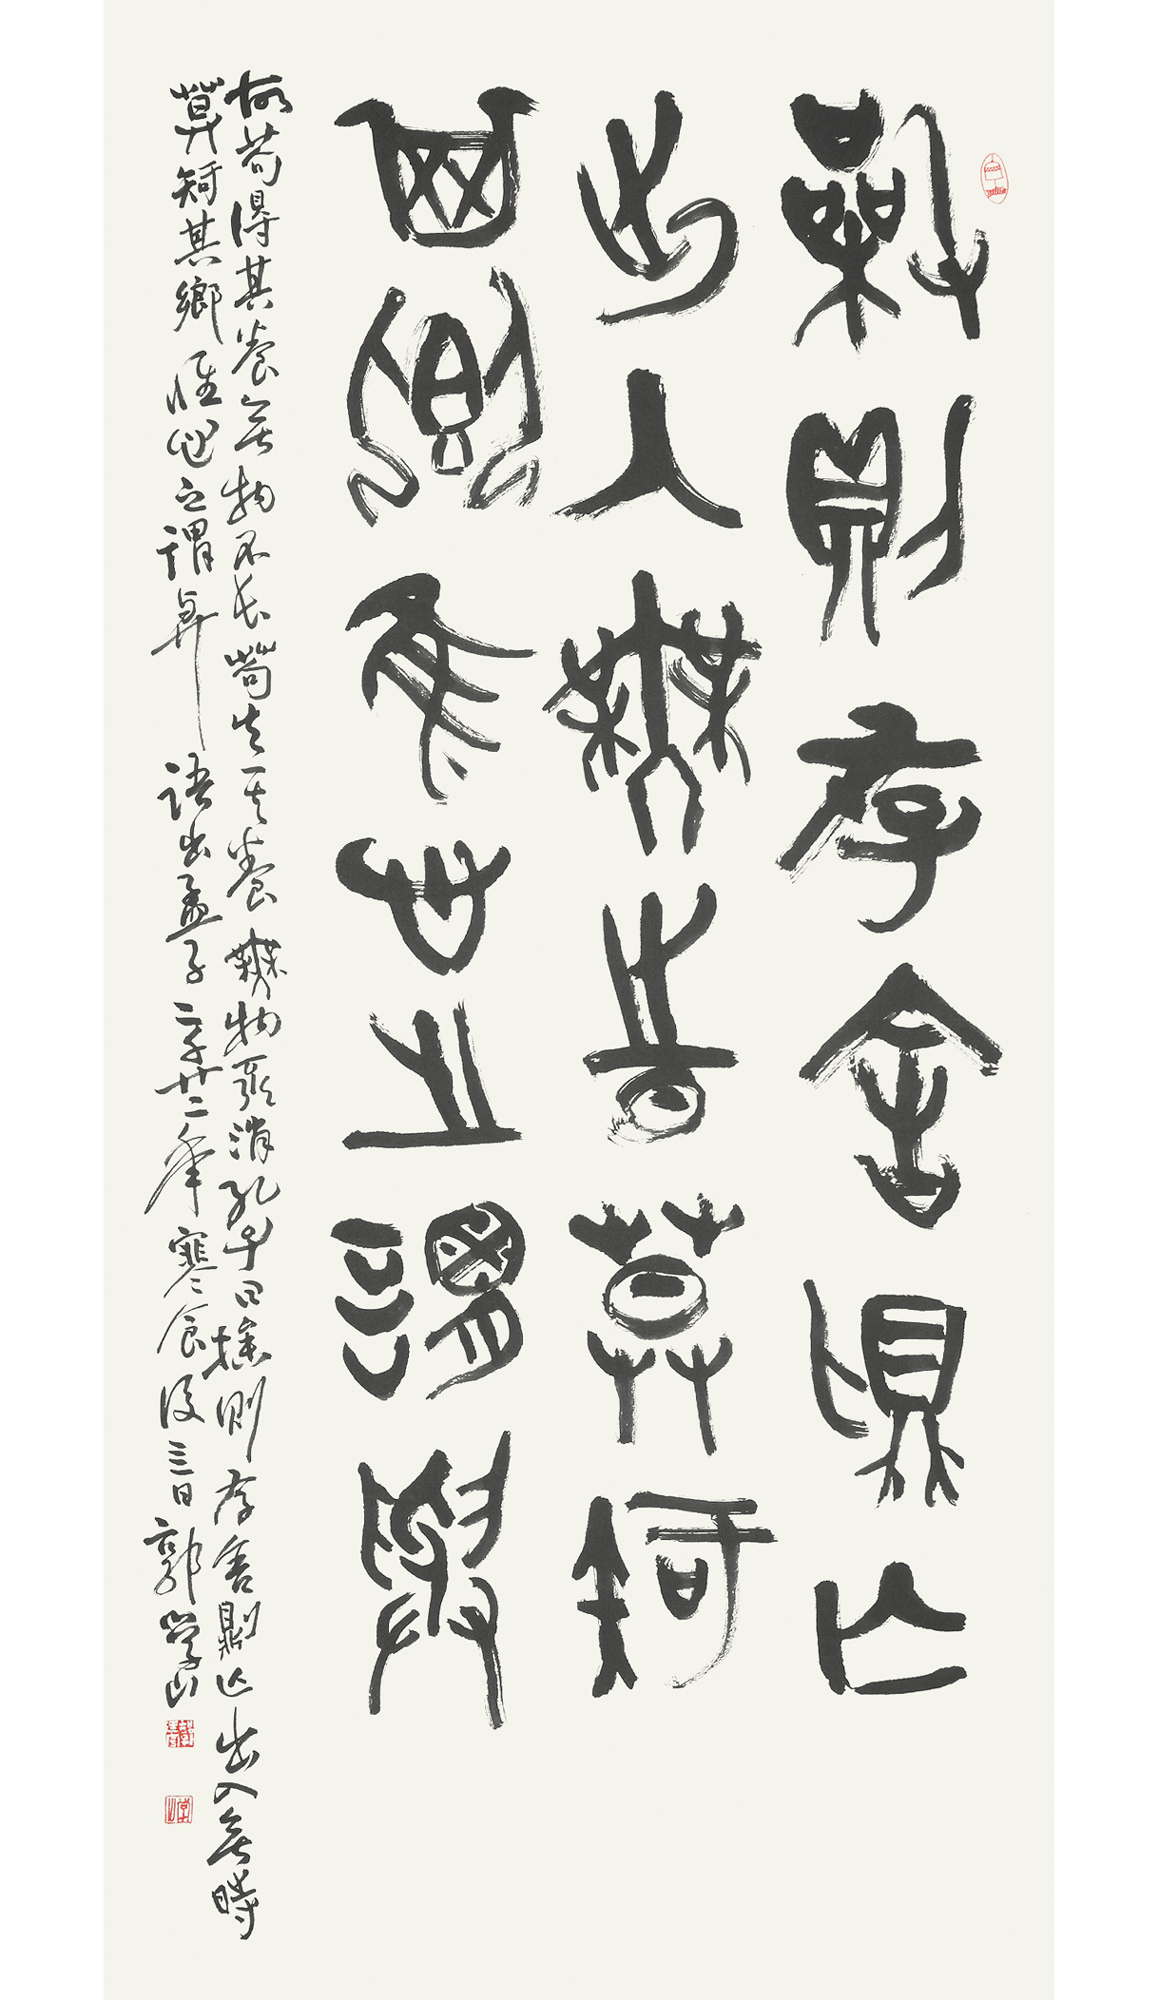 操則存舍則亡
出入無時莫知
其鄉惟心之謂與
故苟得其養無物不長苟失其養無物不消孔子曰操則存舍則亡出入無時
莫知其鄉惟心之謂與 語出孟子 二零廿二年寒食後三日郭堂山